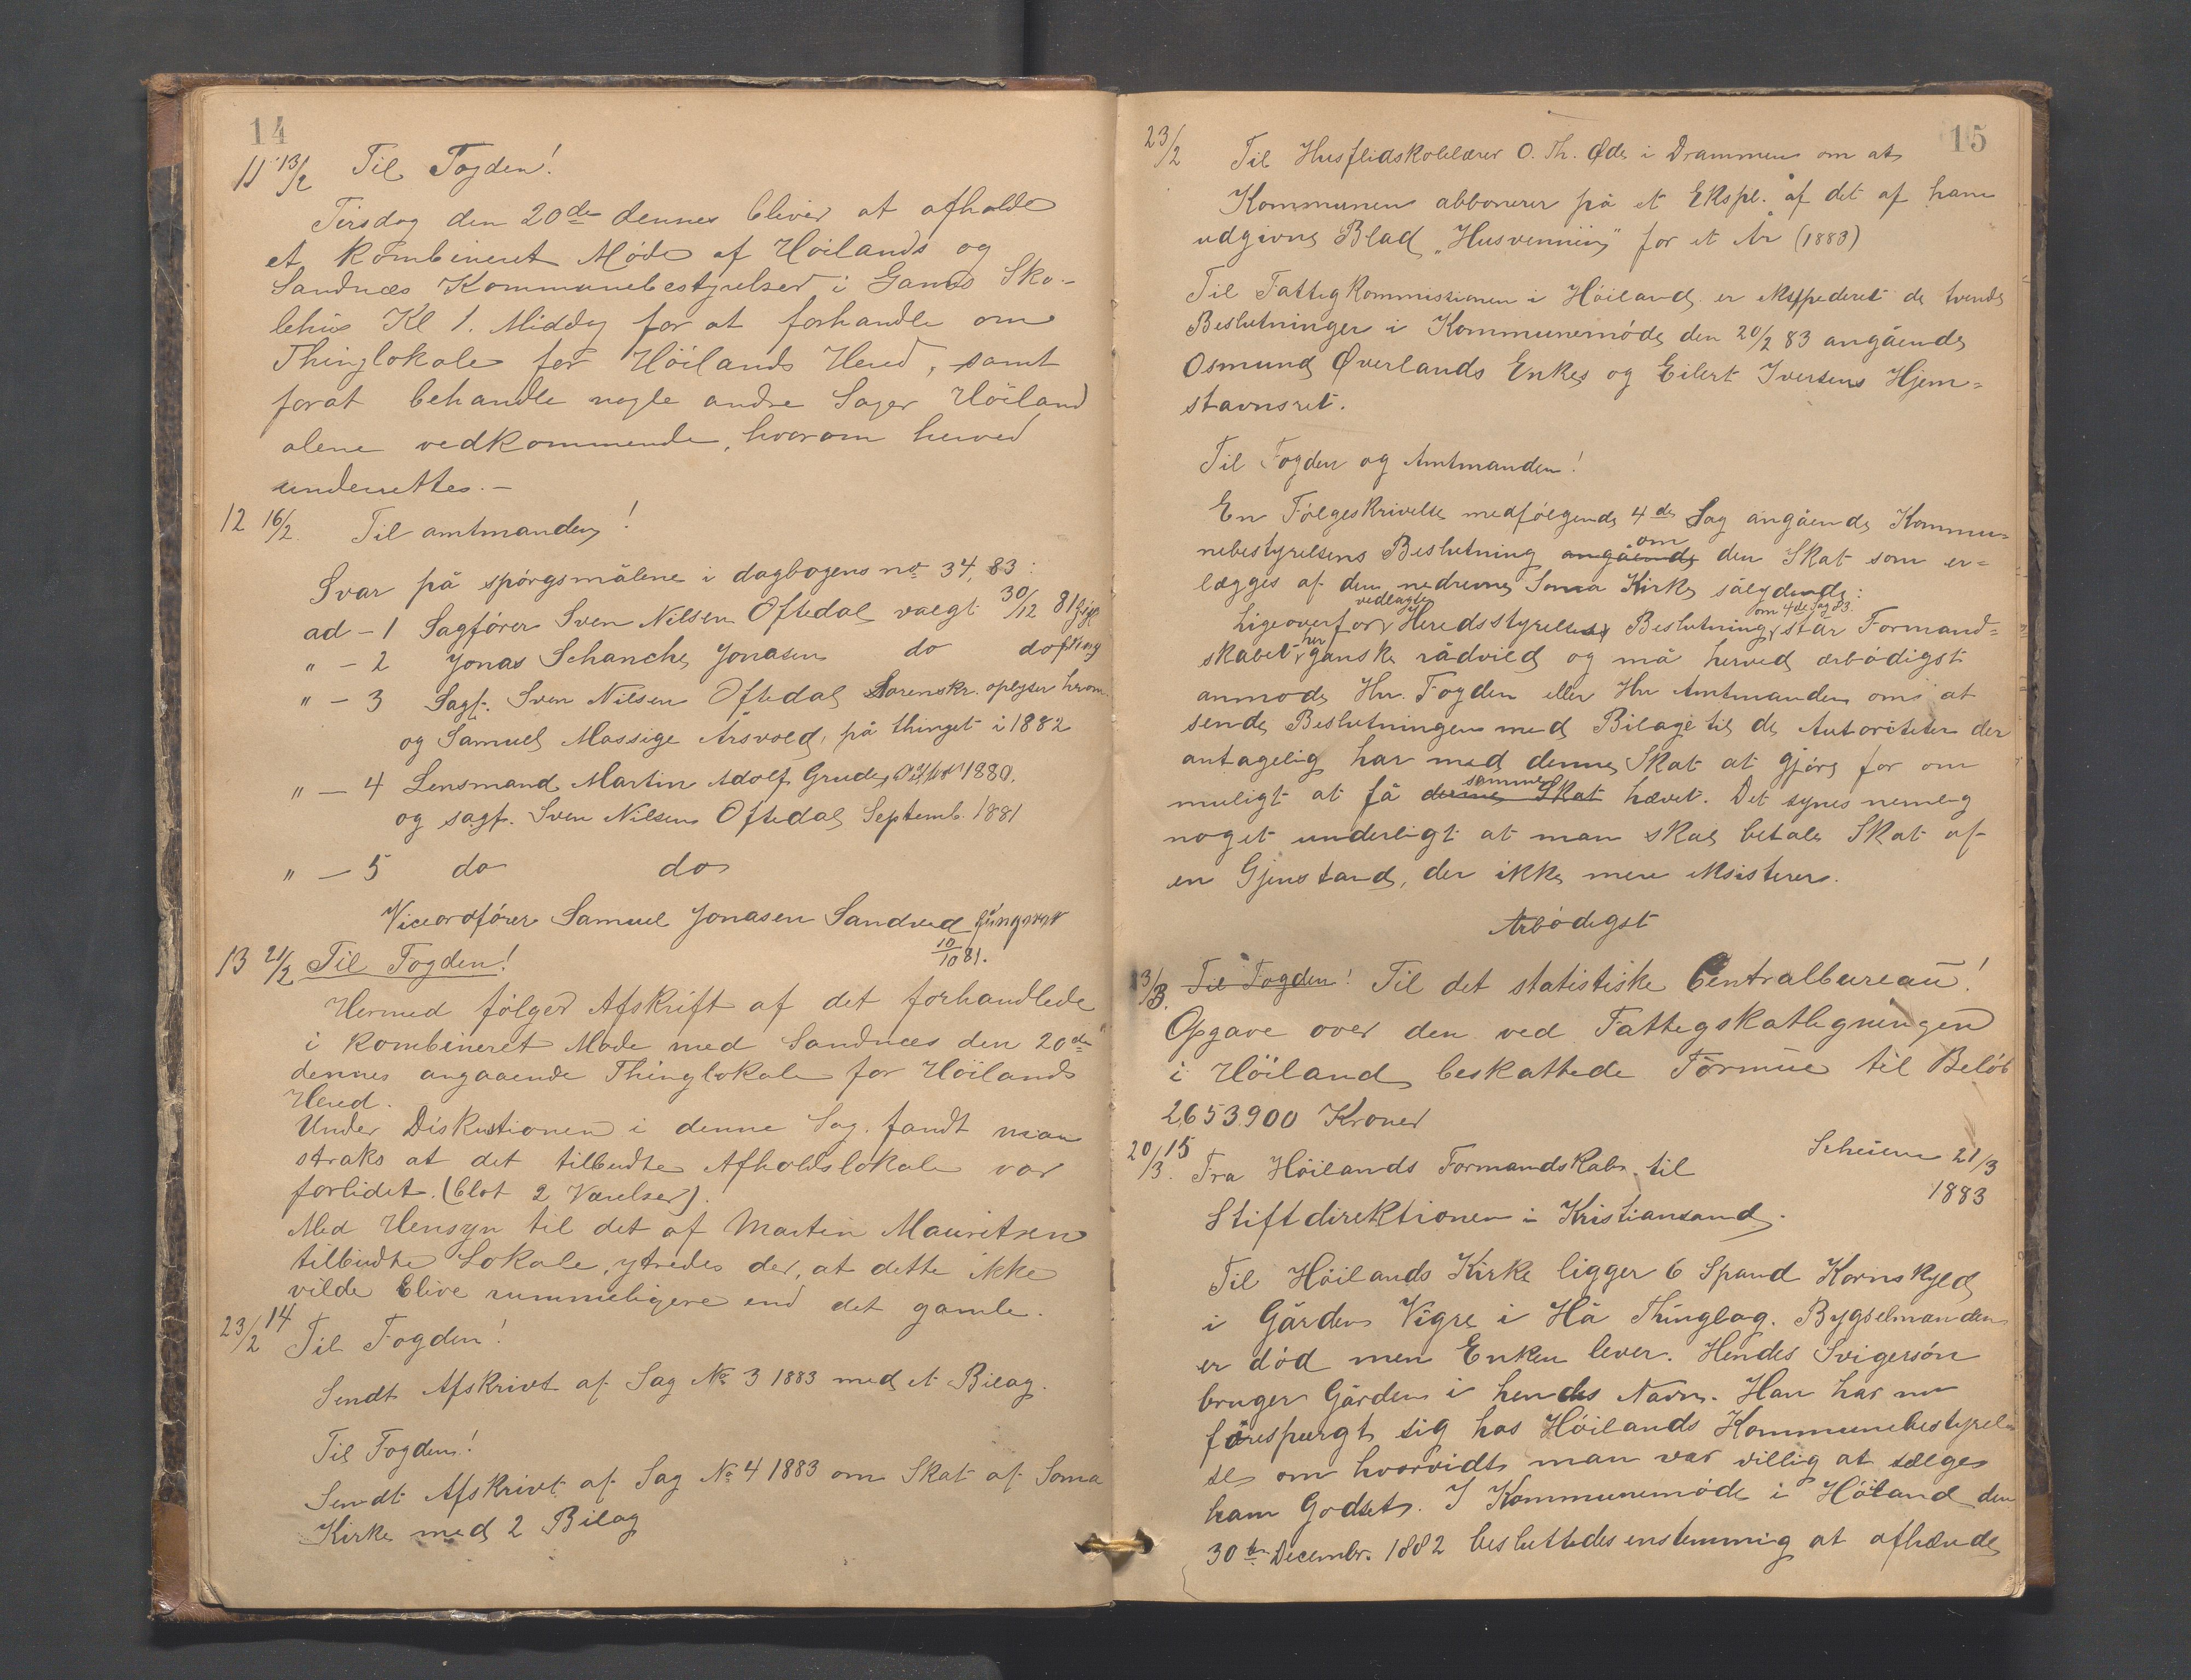 14
11 13/2 Til Fogden!
Tirsdag den 20de dennes bliver at afholde
et kombineret Møde af Höilands og
Sandnæs Kommunebestyrelser i Gands Sko-
lehus Kl 1. Middag for at forhandle om
Thinglokale for Höilands Hered, samt
forat behandle nogle andre Sager Höiland
alene vedkommende, hvorom herved
underrettes.-
12 16/2. Til amtmanden!
Svar på spórgsmålene i dagbogens no 34, 83:
ad - 1 Sagfórer Sven Nilsen Oftedal valgt 30/12 81
" - 2 Jonas Schanche Jonasen do do
" - 3 Sagf. Sven Nilsen Oftedal Sorenskr. oplyser herom.
og Samuel Massige Årsvold, på thinget i 1882
" - 4 Lensmand Martin Adolf Grude, 1880.
og sagf. Sven Nilsen Oftedal Septemb. 1881
" - 5 do do
Viceordfórer Samuel Jonasen Sandved
10/10 81.
13 21/2 Til Fogden!
Hermed følger Afskrift af det forhandlede
i kombineret Møde med Sandnæs den 20de
dennes angaaende Thinglokale for Höilands
Hered.
Under Diskustionen i denne Sag fandt man
straks at det tilbudte Afholdslokale var
forlidet. (blot 2 Værelser).
Med Hensyn til det af Martin Mauritsen
tilbudte Lokale, ytredes der, at dette ikke
vilde blive rummeligere end det gamle.
23/2 14 Til Fogden!
Sendt Afskrivt af Sag No 3 1883 med et Bilag.
Til Fogden!
Sendt Afskrivt af Sag No 4 1883 om Skat af Soma
Kirke med 2 Bilag
15
23/2 Til Husflidskolelærer O. Th. Øde i Drammen om at
Kommunen abbonerer på et Ekspl. af det af ham
udgivne Blad "Husvennen" for et År (1883)
Til Fattigkommissionen i Hóiland er ekspederet de tvende
Beslutninger i Kommunemóde den 20/2 83 angående
Osmund Øverlands Enke og Eilert Iversens Hjem=
stavnsret.
Til Fogden og Amtmanden!
En Fólgeskrivelse medfólgende 4de Sag angående Kommu=
nebestyrelsens Beslutning angående om den Skat som er=
lægges af den nedrevne Soma Kirke sålydende:
Ligeoverfor vedlagte Heredsstyrelses Beslutning om 4de Sag 83. står Formand=
skabet her ganske rådvild og må herved ærbódigst
anmode Hr. Fogden eller Hr Amtmanden om at
sende Beslutningen med Bilage til de Autoriteter der
antagelig har med denne Skat at gjóre for om
muligt at få denne Skat samme hævet. Det synes nemlig
noget underligt at man skal betale Skat af
en Gjenstand, der ikke mere eksisterer.
Ærbódigst
13/3. Til Fogden! Til det statistiske Centralbureau!
Opgave over den ved Fattigskatligningen
i Höiland beskattede Formue til Belöb
2653900 Kroner
20/3. 15 Fra Hóilands Formandskab til Scheien 21/3
1883
Stiftdirektionen i Kristiansand.
Til Hóilands Kirke ligger 6 Spand Kornskyld
i Gården Vigre i Hå Thinglag. Bygselmanden
er dód men Enken lever. Hendes Svigersón
bruger Gården i hendes Navn. Han har nu
förespurgt sig hos Hóilands Kommunebestyrel-
se om hvorvidt man var villig at sælge
ham Godset. I Kommunemóde i Hóiland den
30te Decembr. 1882 besluttedes enstemmig at afhænde